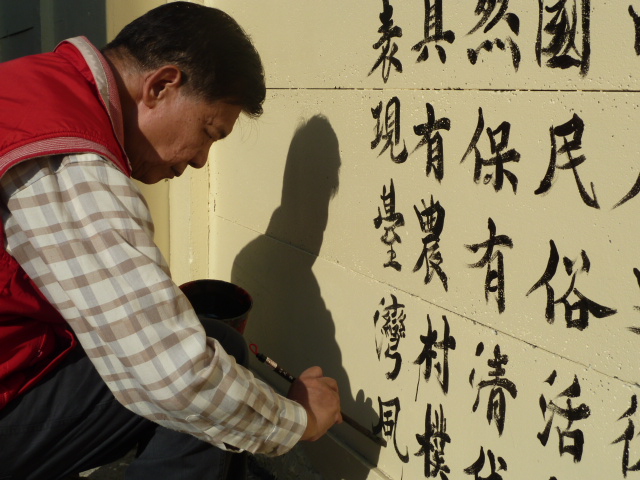 國民俗活
然保有清
具有農村樸
表現臺灣風